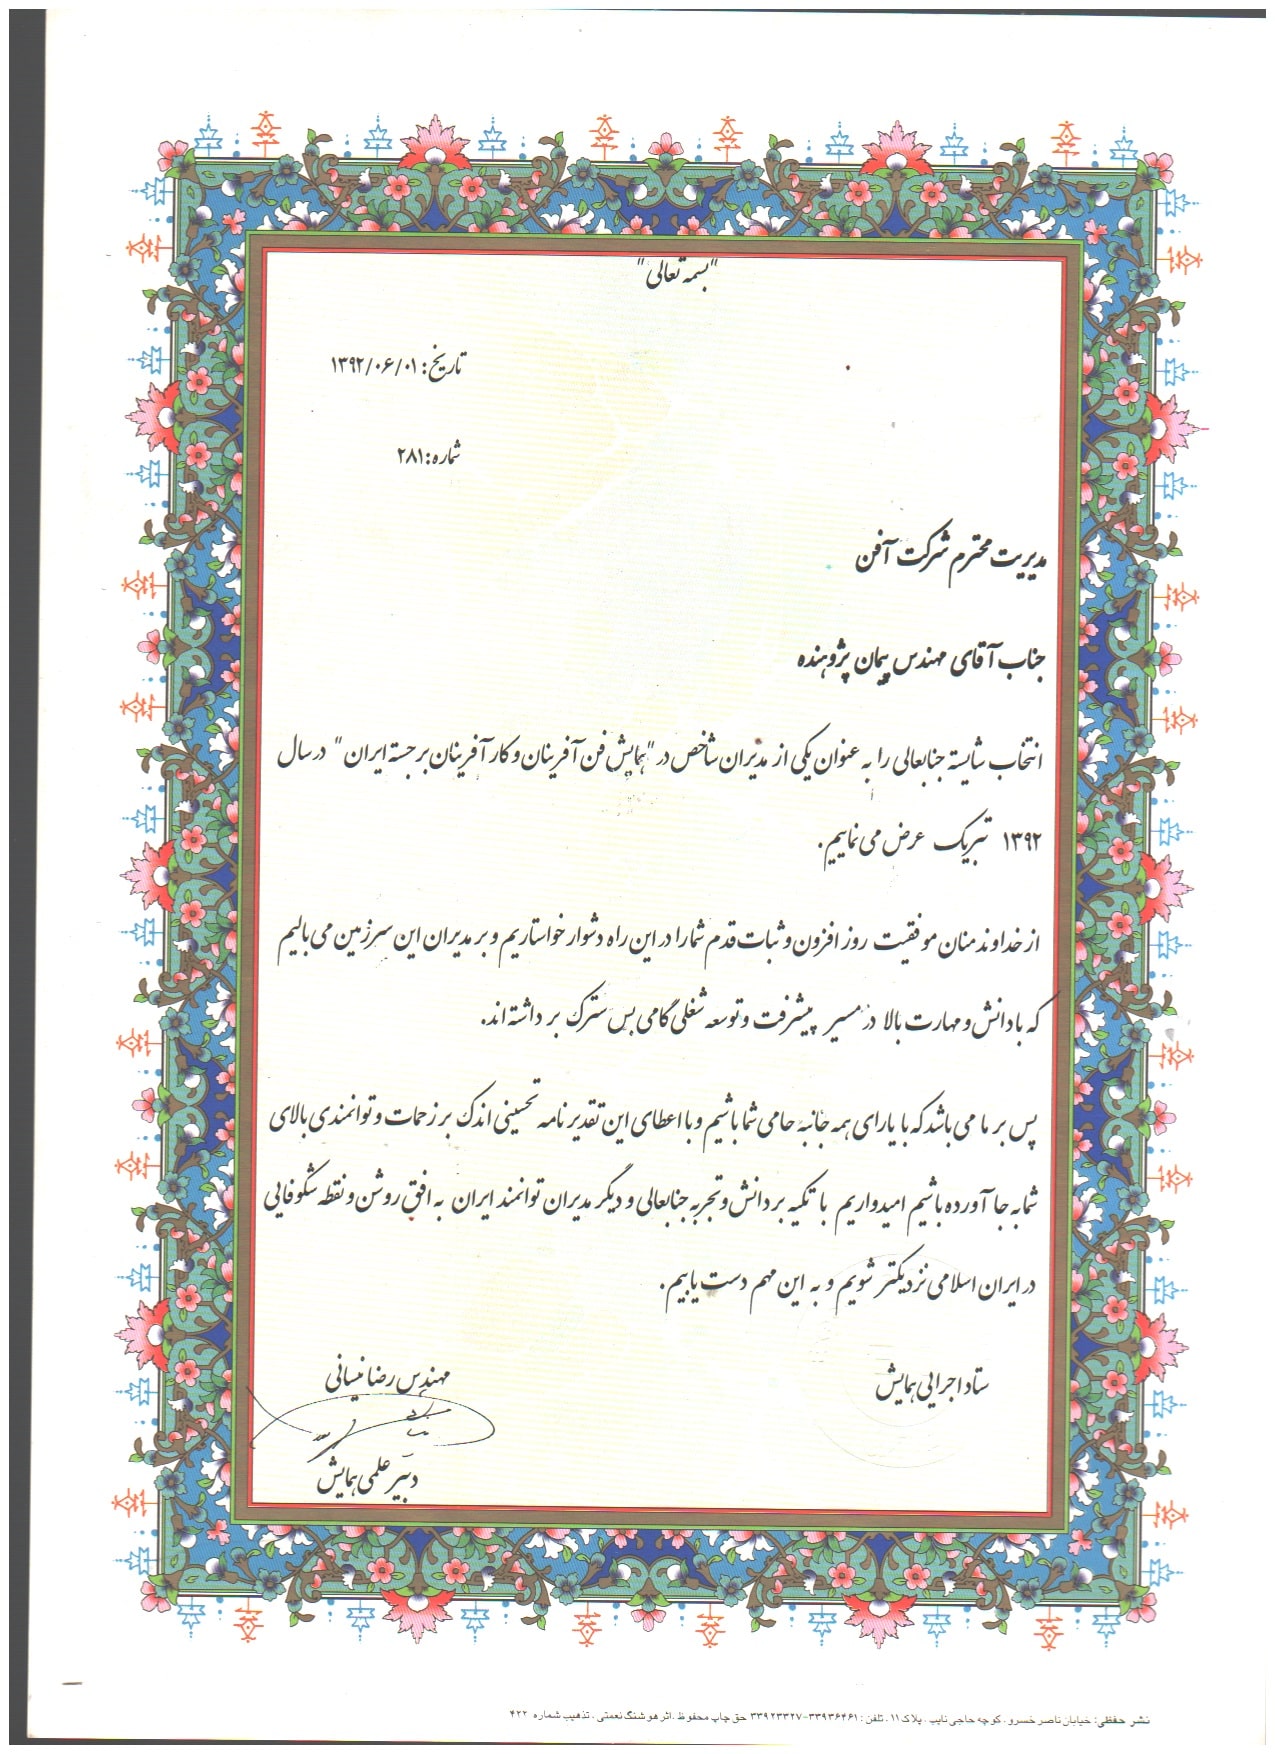 "بسمه تعالی"
تاریخ: ۱۳۹۲/۰۶/۰۱
شماره: ۲۸۱
مدیریت محترم شرکت آفن
جناب آقای مهندس پیمان پژوهنده
انتخاب شایسته جنابعالی را به عنوان یکی از مدیران شاخص در "همایش فن آفرینان و کار آفرینان برجسته ایران" در سال
۱۳۹۲ تبریک عرض می نماییم.
از خداوند منان موفقیت روز افزون و ثبات قدم شما را در این راه دشوار خواستاریم و بر مدیران این سرزمین می بالیم
که با دانش و مهارت بالا در مسیر پیشرفت و توسعه شغلی گامی بس سترک بر داشته اند.
پس بر ما می باشد که با یارای همه جانبه حامی شما باشیم و با اعطای این تقدیر نامه تحسینی اندک بر زحمات و توانمندی بالای
شما به جا آورده باشیم امیدواریم با تکیه بر دانش و تجربه جنابعالی و دیگر مدیران توانمند ایران به افق روشن و نقطه شکوفایی
در ایران اسلامی نزدیکتر شویم و به این مهم دست یابیم.
ستاد اجرایی همایش
مهندس رضا
دبیر علمی همایش
نشر حفظی: خیابان ناصر خسرو، کوچه حاجی نایب، پلاک ۱۱، تلفن: ۳۳۹۳۶۴۶۱-۳۳۹۲۳۳۲۷ حق چاپ محفوظ. اثر هوشنگ نعمتی، تذهیب شماره ۴۲۲